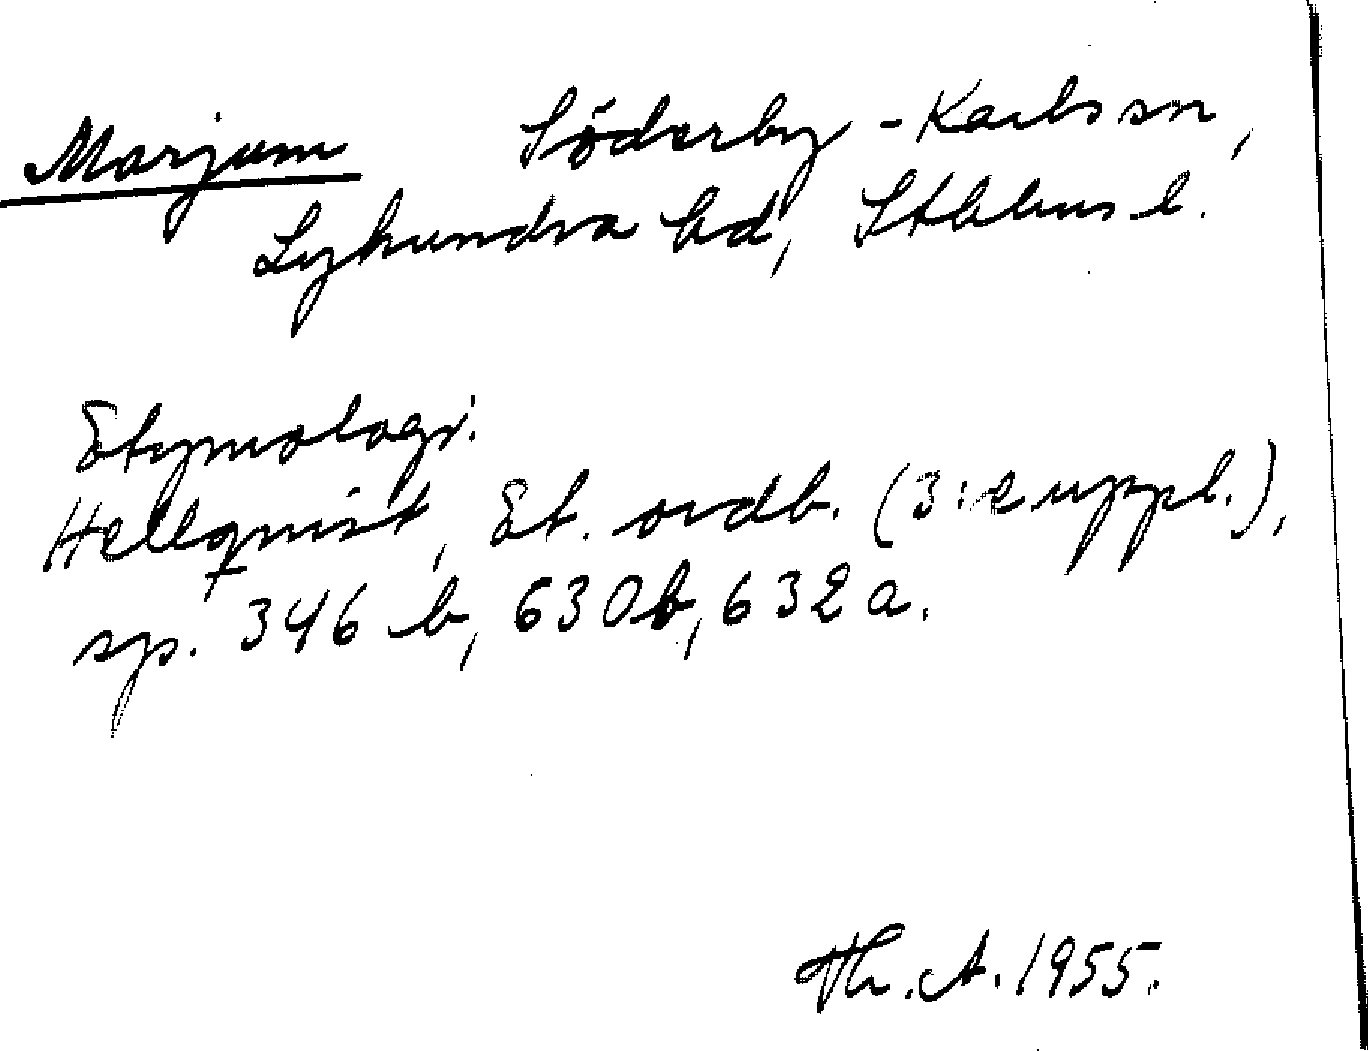 Marjum Söderby-Karls sn,
Lyhundra hd, Sthlms l.
Etymologi.
Hellquist, Et. ordb. (3:e uppl.),
sp. 346 b, 630b, 632 a.
Th. A. 1955.